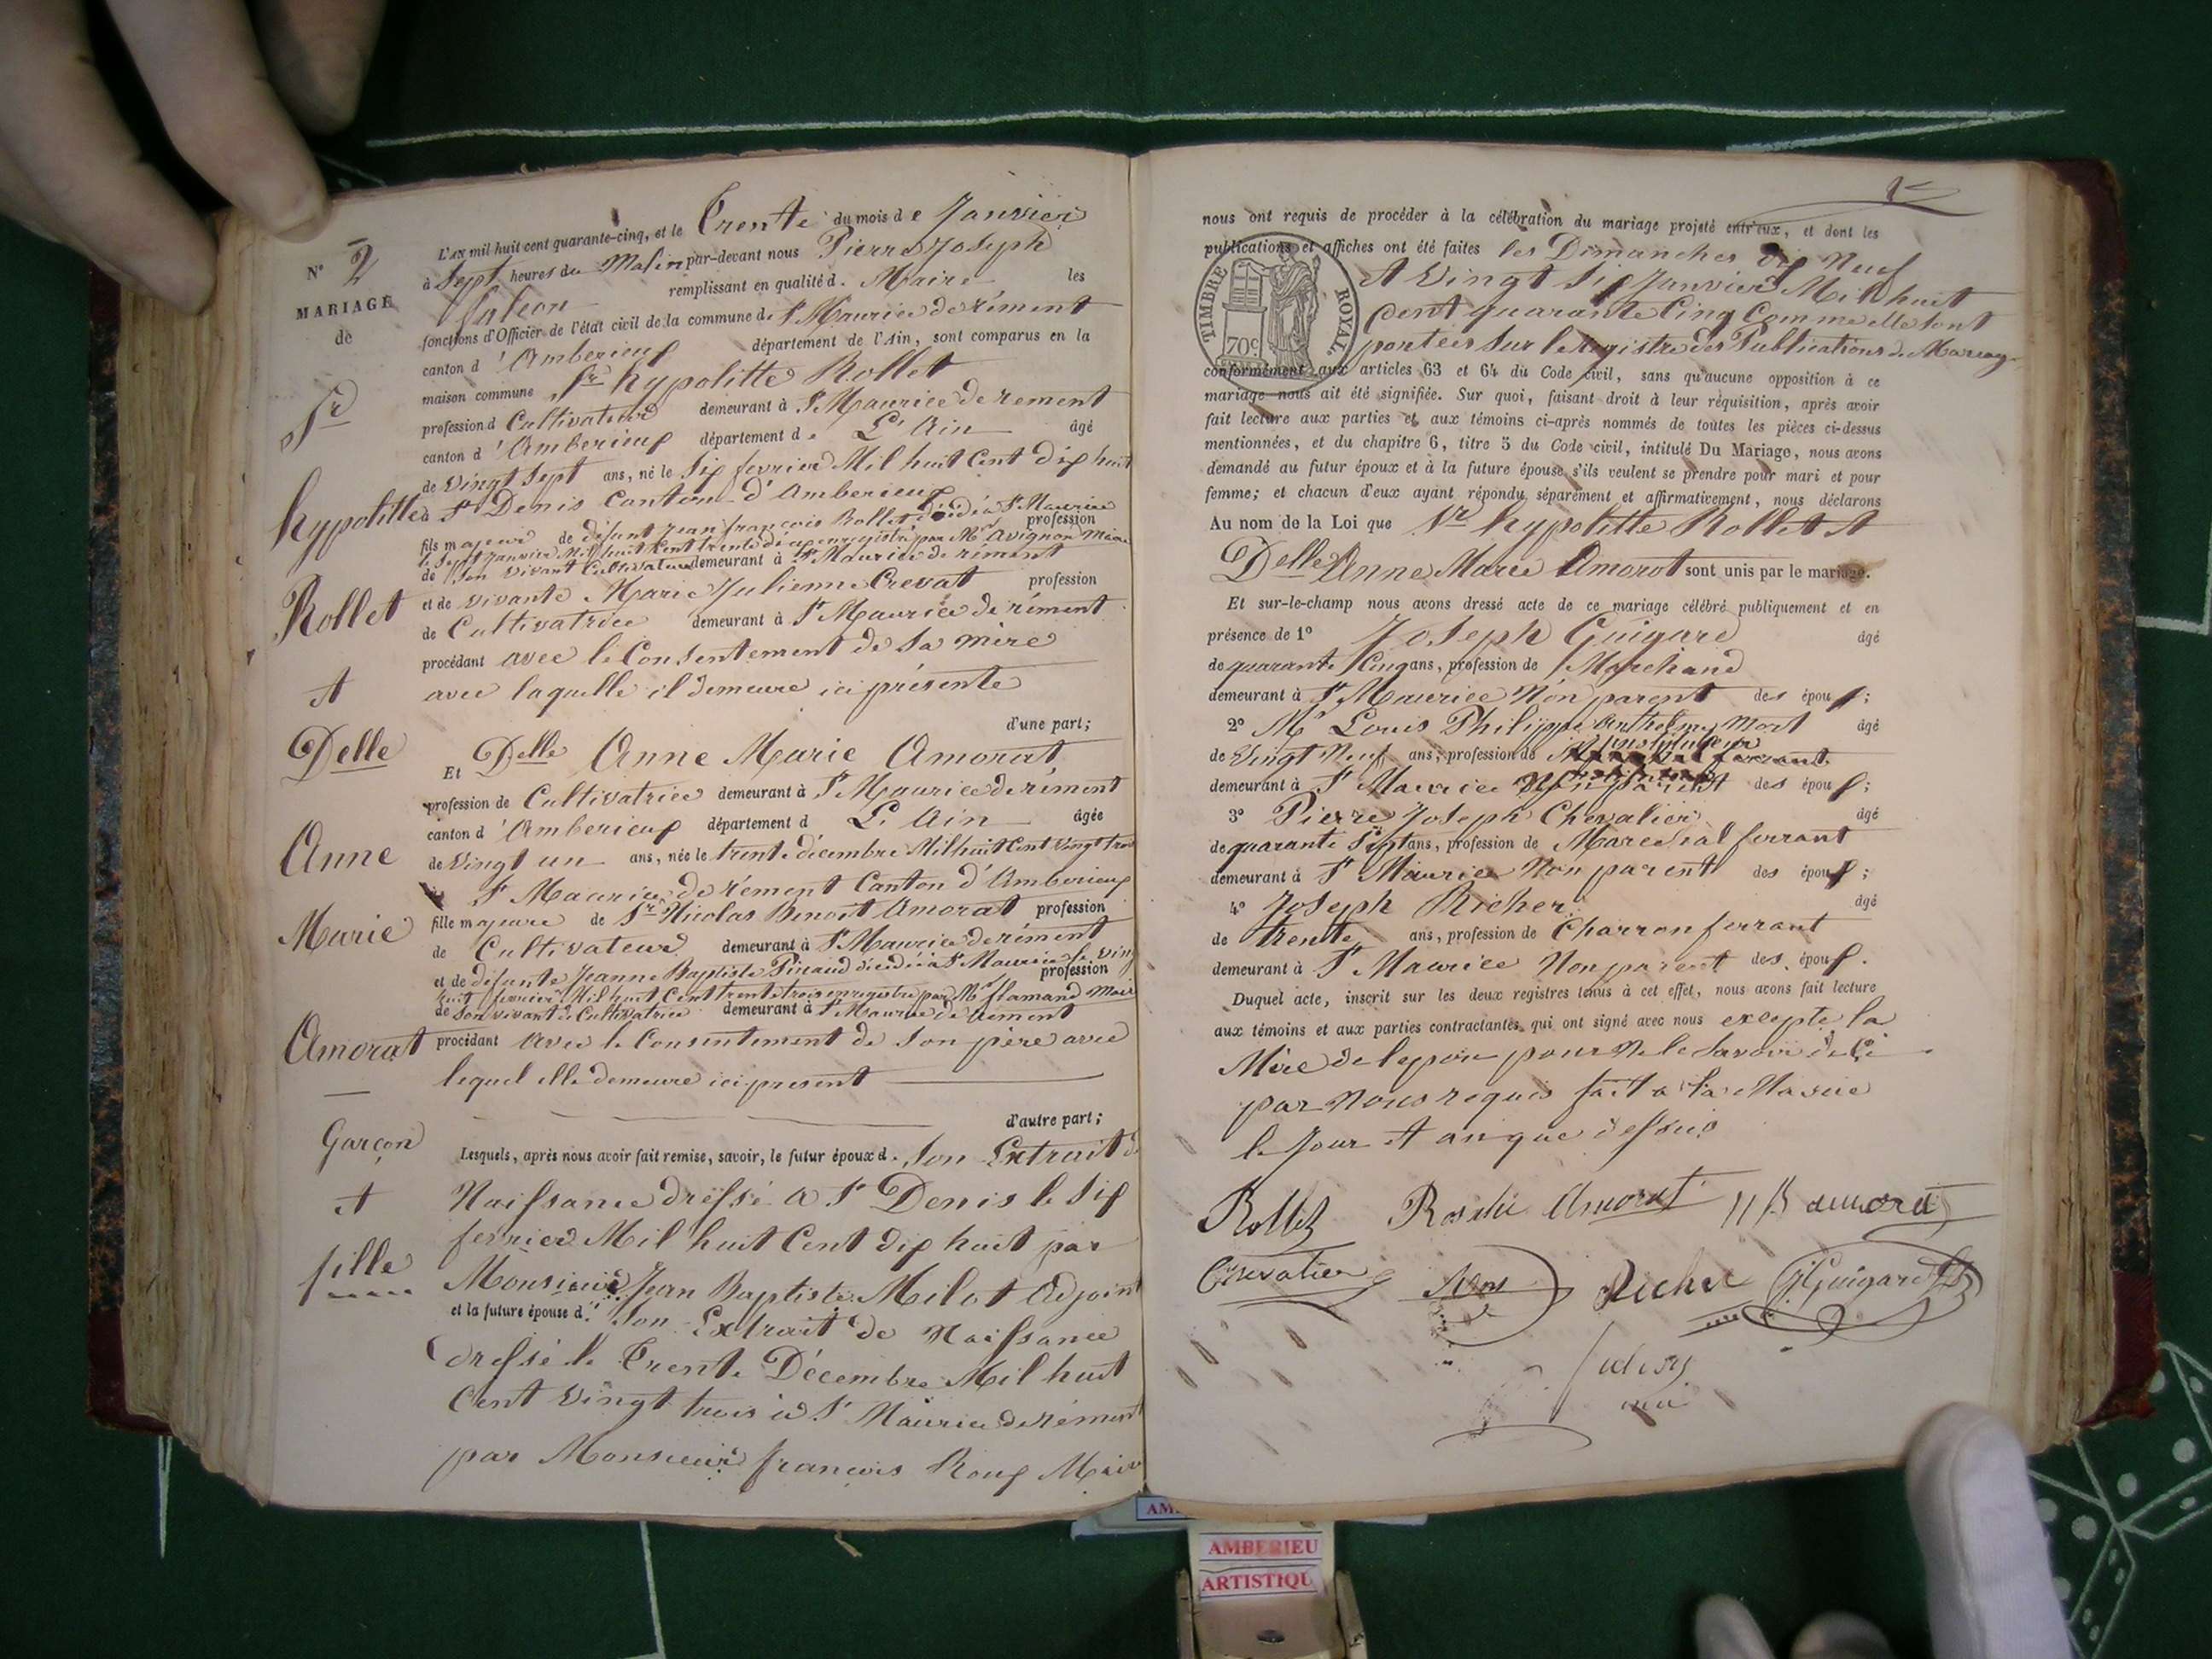 N° 2
MARIAGE
de
Sr
hypolitte
Rollet
et
Delle
Anne
Marie
Amorat
Garçon
et
fille
L'AN mil huit cent quarante-cinq, et le Trente du mois de Janvier
à Sept heures du Matin par-devant nous Pierre Joseph
remplissant en qualité d. Maire les
fonctions d'Officier de l'état civil de la commune de St Maurice de rément
canton d'Amberieux département de l'Ain, sont comparus en la
maison commune Sr hypolitte Rollet
profession d Cultivateur demeurant à St Maurice de rement
canton d'Amberieux département d. L'Ain âgé
de Vingt Sept ans, né le Six fevrier Mil huit Cent dix huit
à St Denis Canton d'Amberieux
fils majeur de défunt Jean françois Rollet décédé à St Maurice profession
le Sept Janvier Mil huit Cent trente enregistré par Mr Avignon Maire
de Son vivant Cultivateur demeurant à St Maurice de rément
et de vivante Marie Julienne Crevat profession
de Cultivatrice demeurant à St Maurice de rément
procédant avec le Consentement de Sa mère
avec laquelle il demeure ici présente
d'une part;
Et Delle Anne Marie Amorat
profession de Cultivatrice demeurant à St Maurice de rément
canton d'Amberieux département d L'Ain âgée
de Vingt un ans, née le trente décembre Mil huit Cent Vingt trois
à St Maurice de rément Canton d'Amberieux
fille majeure de Sr Nicolas Benoit Amorat profession
de Cultivateur demeurant à St Maurice de rément
et de défunte Jeanne Baptiste Pinaud décédée à St Maurice le Vingt profession
huit fevrier Mil huit Cent trente trois enregistré par Mr flamand Maire
de Son vivant Cultivatrice demeurant à St Maurice de rément
procédant avec le Consentement de Son père avec
lequel elle demeure ici present
d'autre part;
Lesquels, après nous avoir fait remise, savoir, le futur époux d. Son Extrait de
Naissance dressé a St Denis le Six
fevrier Mil huit Cent dix huit par
Monsieur Jean Baptiste Milot Adjoint
et la future épouse d. Son Extrait de Naissance
dressé le Trente Décembre Mil huit
Cent Vingt trois à St Maurice de rément
par Monsieur françois Roux Maire
nous ont requis de procéder à la célébration du mariage projeté entr'eux, et dont les
publications et affiches ont été faites les Dimanches dix Neuf
et Vingt Six Janvier Mil huit
Cent quarante Cinq Comme elle Sont
portées Sur le Registre des Publications de Mariag
TIMBRE ROYAL. 70c
conformément aux articles 63 et 64 du Code civil, sans qu'aucune opposition à ce
mariage nous ait été signifiée. Sur quoi, faisant droit à leur réquisition, après avoir
fait lecture aux parties et aux témoins ci-après nommés de toutes les pièces ci-dessus
mentionnées, et du chapitre 6, titre 5 du Code civil, intitulé Du Mariage, nous avons
demandé au futur époux et à la future épouse s'ils veulent se prendre pour mari et pour
femme; et chacun d'eux ayant répondu séparément et affirmativement, nous déclarons
Au nom de la Loi que Sr hypolitte Rollet et
Delle Anne Marie Amorot sont unis par le mariage.
Et sur-le-champ nous avons dressé acte de ce mariage célébré publiquement et en
présence de 1° Joseph Guigard âgé
de quarante Cinq ans, profession de Marchand
demeurant à St Maurice Non parent des époux;
2° Mr Louis Philippe Anthelme Mort âgé
de Vingt Neuf ans, profession de instituteur
demeurant à St Maurice Non parent des époux;
3° Pierre Joseph Chevalier âgé
de quarante Sept ans, profession de Marechal ferrant
demeurant à St Maurice Non parent des époux;
4° Joseph Richer âgé
de trente ans, profession de Charron ferrant
demeurant à St Maurice Non parent des époux.
Duquel acte, inscrit sur les deux registres tenus à cet effet, nous avons fait lecture
aux témoins et aux parties contractantes qui ont signé avec nous excepte la
Mère de lepoux pour Ne le Savoir de Ce
par Nous requis fait a la Mairie
le Jour et an que dessus
Rollet Rosalie Amorat NB amorat
Chevalier Richer J Guigard
AMBERIEU
ARTISTIQU